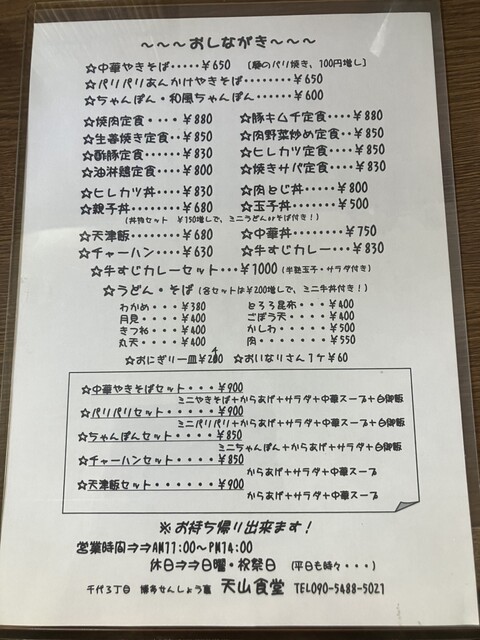 ～～～おしながき～～～
☆中華やきそば・・・・・￥650 〔麺のパリ焼き、100円増し〕
☆パリパリあんかけやきそば・・・・・・・￥650
☆ちゃんぽん・和風ちゃんぽん・・・・・・￥600
☆焼肉定食・・・・￥880 ☆豚キムチ定食・・・・￥880
☆生姜焼き定食・・￥850 ☆肉野菜炒め定食・・￥850
☆酢豚定食・・・・￥830 ☆ヒレカツ定食・・・￥850
☆油淋鶏定食・・・￥800 ☆焼きサバ定食・・・￥830
☆ヒレカツ丼・・・￥830 ☆肉とじ丼・・・￥800
☆親子丼・・・・・￥680 ☆玉子丼・・・・￥500
（丼物セット ￥150増しで、ミニうどんorそば付き！）
☆天津飯・・・・・￥680 ☆中華丼・・・・・・・￥750
☆チャーハン・・・￥630 ☆牛すじカレー・・・￥830
☆牛すじカレーセット・・・￥1000（半熟玉子・サラダ付き）
☆うどん・そば（各セットは￥200増しで、ミニ牛丼付き！）
わかめ・・・￥380 とろろ昆布・・￥400
月見・・・・￥400 ごぼう天・・・￥400
きつね・・・￥400 かしわ・・・・￥500
丸天・・・・￥400 肉・・・・・・￥550
☆おにぎり一皿 ☆おいなりさん1ケ￥60
☆中華やきそばセット・・・・￥900
ミニやきそば＋からあげ＋サラダ＋中華スープ＋白御飯
☆パリパリセット・・・・・・￥900
ミニパリパリ＋からあげ＋サラダ＋中華スープ＋白御飯
☆ちゃんぽんセット・・・・・￥850
ミニちゃんぽん＋からあげ＋サラダ＋白御飯
☆チャーハンセット・・・・・￥850
からあげ＋サラダ＋中華スープ
☆天津飯セット・・・・・￥900
からあげ＋サラダ＋中華スープ
※お持ち帰り出来ます！
営業時間⇒⇒AM11:00～PM14:00
休日⇒⇒日曜・祝祭日 （平日も時々・・・）
千代3丁目 博多せんしょう裏 天山食堂 TEL090-5488-5021